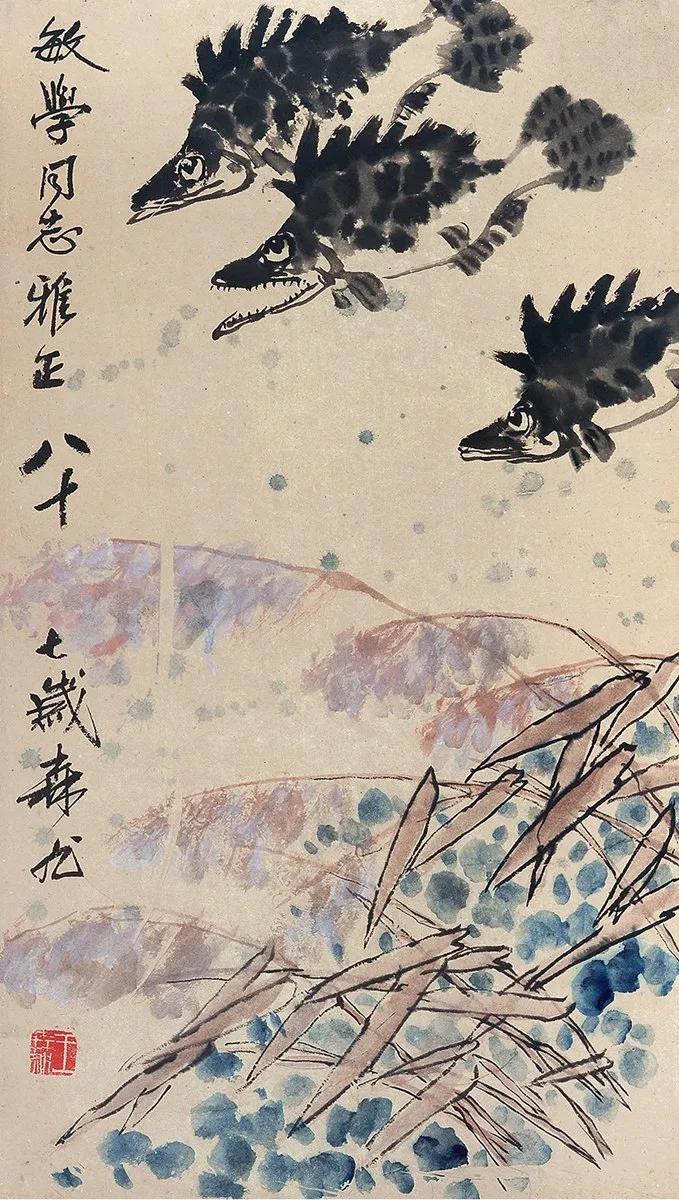 敏學同志雅正 八十七歲森然